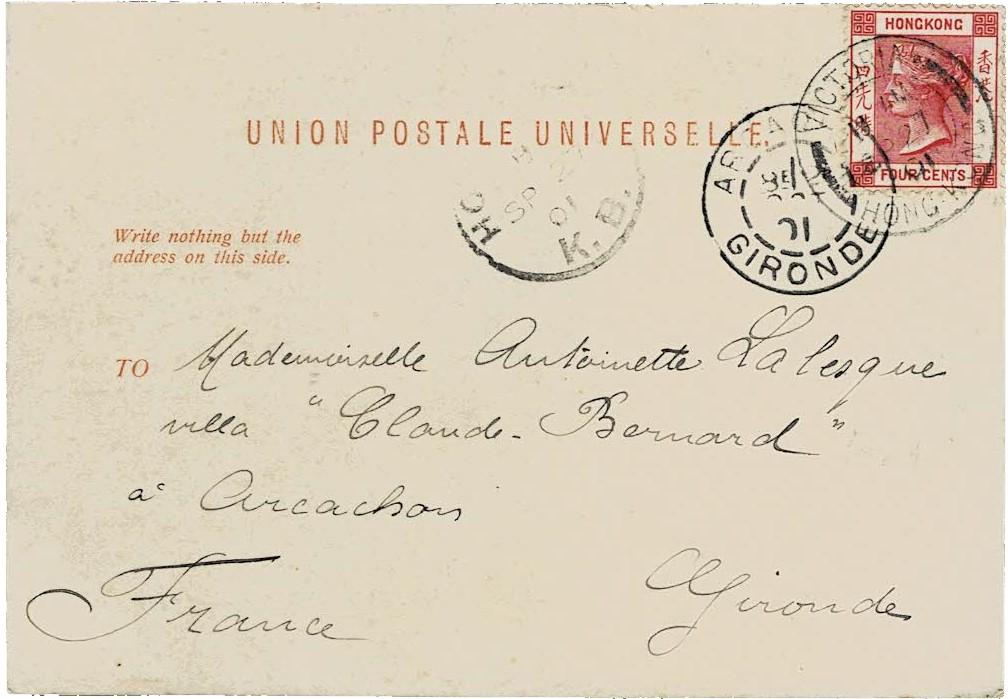 HONGKONG
香港
FOUR CENTS
VICTORIA
HONG-K
UNION POSTALE UNIVERSELLE.
SP
01
K. B.
GIRONDE
01
Write nothing but the
address on this side.
TO Mademoiselle Antoinette Lalesque
villa "Claude-Bernard"
à Arcachon
France Gironde